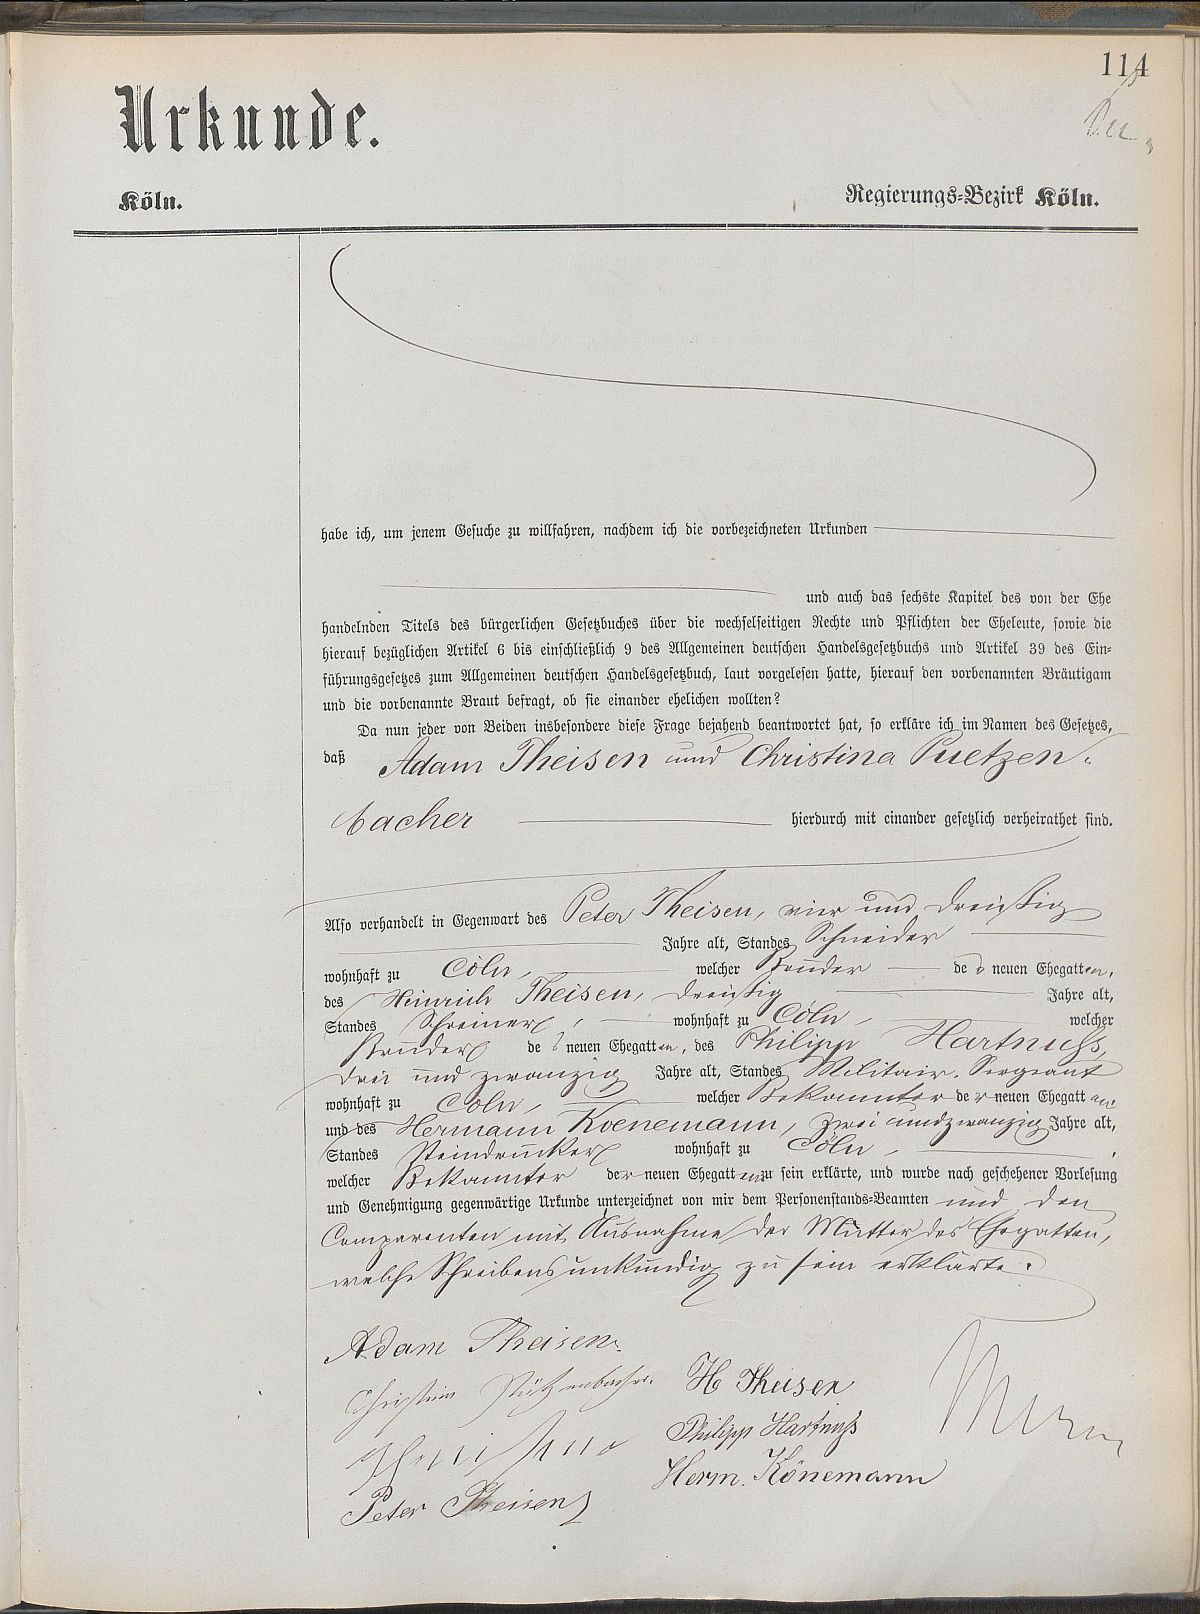 114
Urkunde.
Köln.
Regierungs-Bezirk Köln.
habe ich, um jenem Gesuche zu willfahren, nachdem ich die vorbezeichneten Urkunden
und auch das sechste Kapitel des von der Ehe
handelnden Titels des bürgerlichen Gesetzbuches über die wechselseitigen Rechte und Pflichten der Eheleute, sowie die
hierauf bezüglichen Artikel 6 bis einschließlich 9 des Allgemeinen deutschen Handelsgesetzbuchs und Artikel 39 des Ein-
führungsgesetzes zum Allgemeinen deutschen Handelsgesetzbuch, laut vorgelesen hatte, hierauf den vorbenannten Bräutigam
und die vorbenannte Braut befragt, ob sie einander ehelichen wollten?
Da nun jeder von Beiden insbesondere diese Frage bejahend beantwortet hat, so erkläre ich im Namen des Gesetzes,
daß Adam Theisen und Christina Puetzen-
bacher hierdurch mit einander gesetzlich verheirathet sind.
Also verhandelt in Gegenwart des Peter Theisen, vier und dreißig
Jahre alt, Standes Schneider
wohnhaft zu Cöln, welcher Bruder des neuen Ehegatten,
des Heinrich Theisen, dreißig Jahre alt,
Standes Schreiner, wohnhaft zu Cöln, welcher
Bruder des neuen Ehegatten, des Philipp Hartnuß,
drei und zwanzig Jahre alt, Standes Militair-Sergeant
wohnhaft zu Cöln, welcher Bekannter der neuen Ehegatten
und des Hermann Koenemann, zwei und zwanzig Jahre alt,
Standes Steindrucker wohnhaft zu Cöln,
welcher Bekannter der neuen Ehegatten zu sein erklärte, und wurde nach geschehener Vorlesung
und Genehmigung gegenwärtige Urkunde unterzeichnet von mir dem Personenstands-Beamten und den
Comparenten mit Ausnahme der Mutter des Ehegatten,
welche Schreibens unkundig zu sein erklärte.
Adam Theisen
Christina Pützenbacher.
H Theisen
Philipp Hartnuß
Herm. Könemann
Peter Theisen